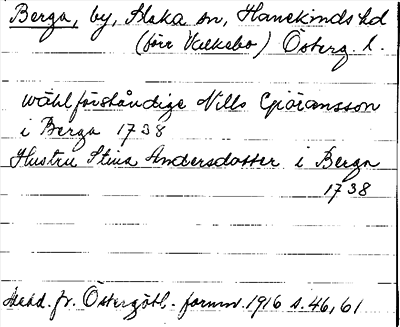 Berga, by, Slaka sn, Hanekinds hd
(förr Valkebo) Österg. l.
Wählförståndige Nills Giöransson
i Berga 1738
Hustru Stina Andersdotter i Berga
1738
Medd. fr. Östergötl. fornm. 1916 s. 46, 61